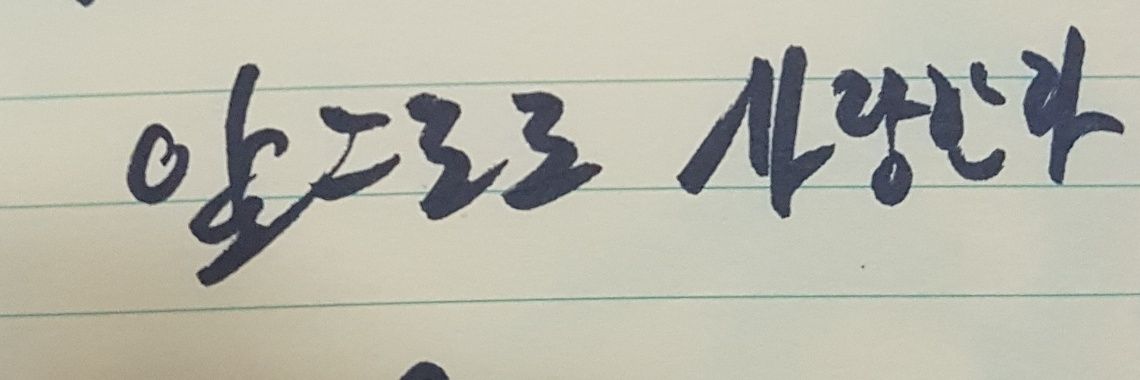 앞으로도 사랑한다